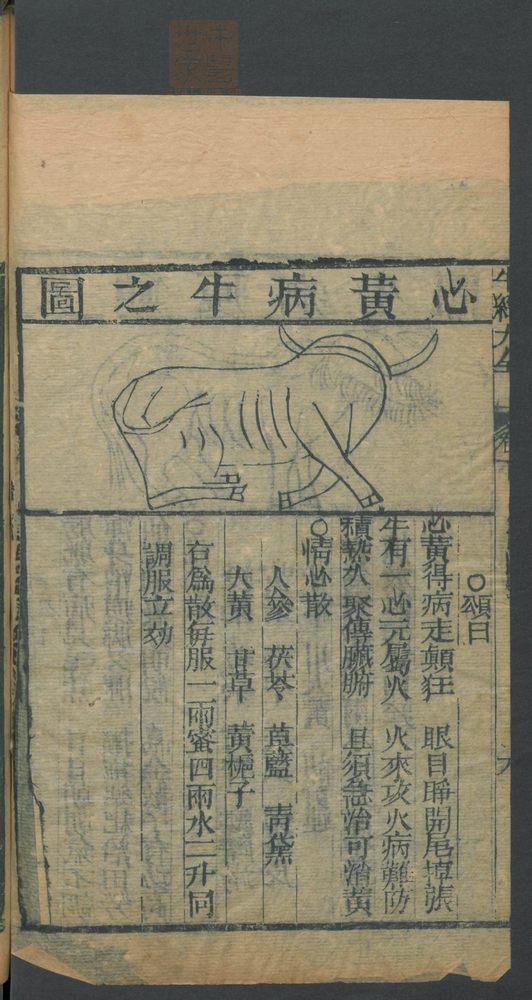 心黃病牛之圖
○頌曰
心黃得病走顛狂 眼目睜開尾埠張
牛有一心元屬火 火來攻火病難防
積熱久聚傳臟腑 且須急治可消黃
○清心散
人參 茯苓 藍 青黛
大黃 甘草 黃梔子
右為散每服二兩蜜四兩水二升同
調服立効